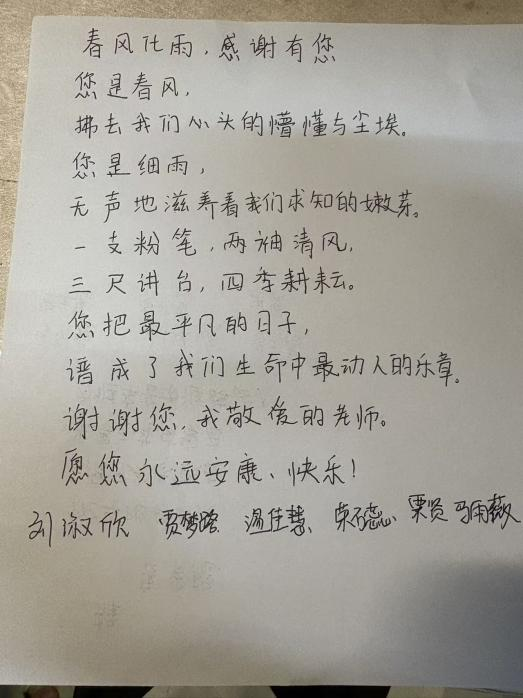 春风化雨，感谢有您
您是春风，
拂去我们心头的懵懂与尘埃。
您是细雨，
无声地滋养着我们求知的嫩芽。
一支粉笔，两袖清风，
三尺讲台，四季耕耘。
您把最平凡的日子，
谱成了我们生命中最动人的乐章。
谢谢您，我敬爱的老师。
愿您永远安康、快乐！
刘淑欣 贾梦璐 温佳慧 栗贤 马雨薇